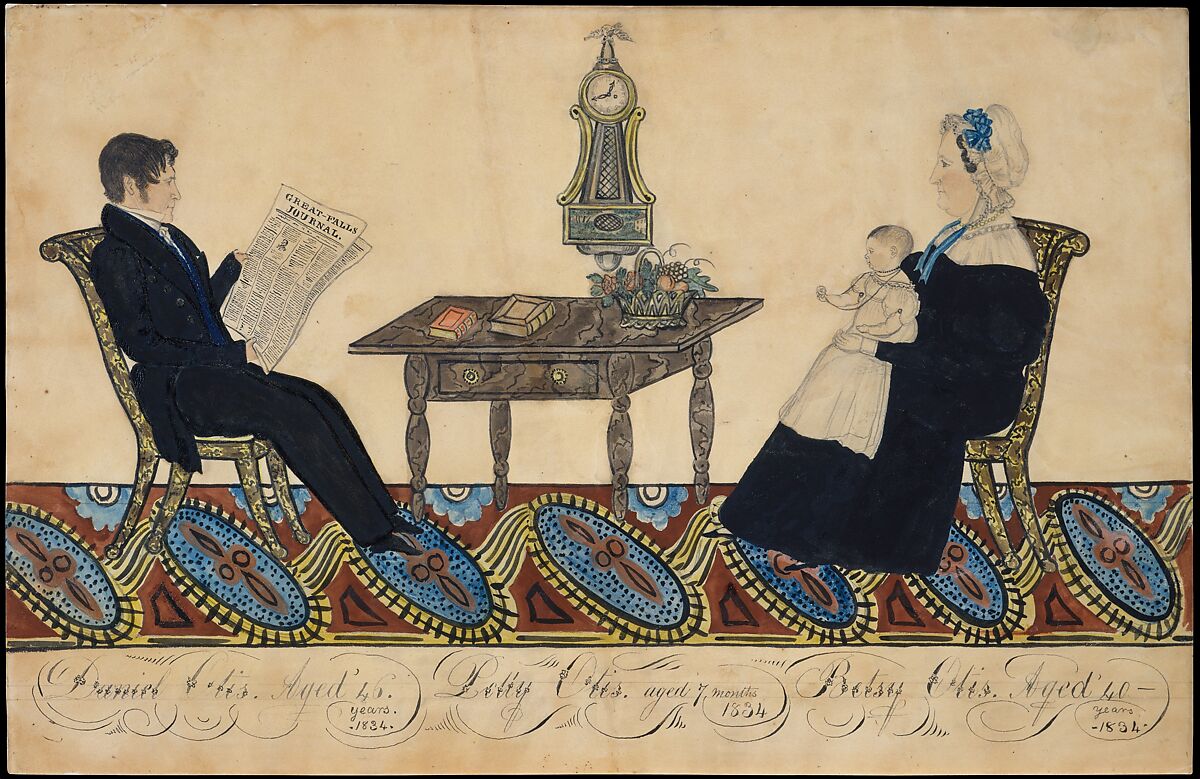 GREAT-FALLS
JOURNAL.
Daniel Otis. Aged 46.
years.
-1834.
Polly Otis. aged 7 months
1834
Betsy Otis. Aged 40-
years
-1834-